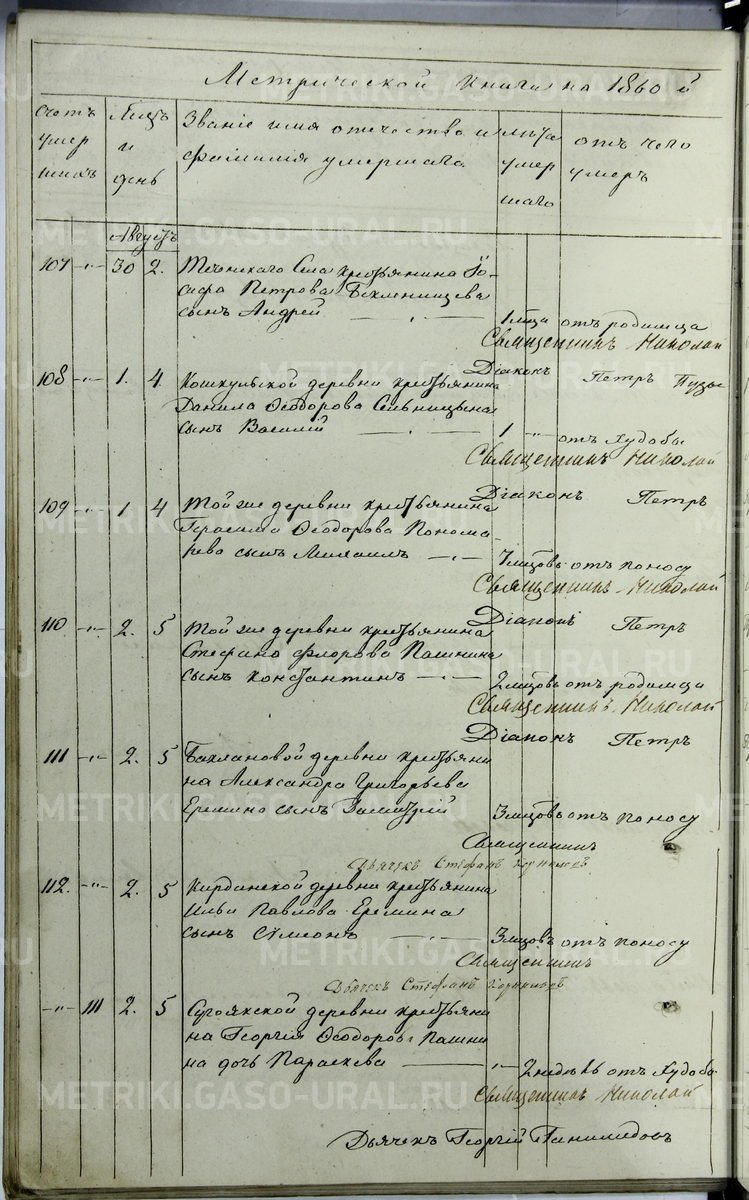 Метрической книги на 1860 й
Счетъ умершихъ
Мѣсяцъ и день
Званіе имя отечество и фамилія умершаго
лѣта умершаго
отъ чего умеръ
Августъ
107 -"- 30 2. Теченскаго Села крестьянина Іо-
сифа Петрова Бекленищева
сынъ Андрей 1 мѣсяца отъ родимца
Священникъ Николай
Діаконъ Петръ
108 -"- 1. 4. Кошкульской деревни крестьянина
Данила Ѳеодорова Сельницына
сынъ Василій 1 -"- отъ худобы
Священникъ Николай
Діаконъ Петръ
109 -"- 1 4 Той же деревни крестьянина
Герасима Ѳеодорова Понома-
рева сынъ Михаилъ 7 мѣсяцовъ отъ поносу
Священникъ Николай
Діаконъ Петръ
110. -"- 2. 5 Той же деревни крестьянина
Стефана Флорова Пашнина
сынъ Константинъ 2 мѣсяцовъ отъ родимца
Священникъ Николай
Діаконъ Петръ
111 -"- 2. 5 Баклановой деревни крестьяни
на Александра Григорьева
Еремина сынъ Димитрій 3 мѣсяцовъ отъ поносу
Священникъ
Дьячекъ Стефанъ
112. -"- 2. 5 Кирдинской деревни крестьянина
Ильи Павлова Еремина
сынъ Сѵмеонъ 3 мѣсяцовъ отъ поносу
Священникъ
Дьячекъ Стефанъ
-"- 111 2. 5 Сугоякской деревни крестьяни
на Георгія Ѳеодорова Пашни
на дочь Параскева -"- 2 недѣль отъ худобы
Священникъ Николай
Дьячекъ Георгій
METRIKI.GASO-URAL.RU